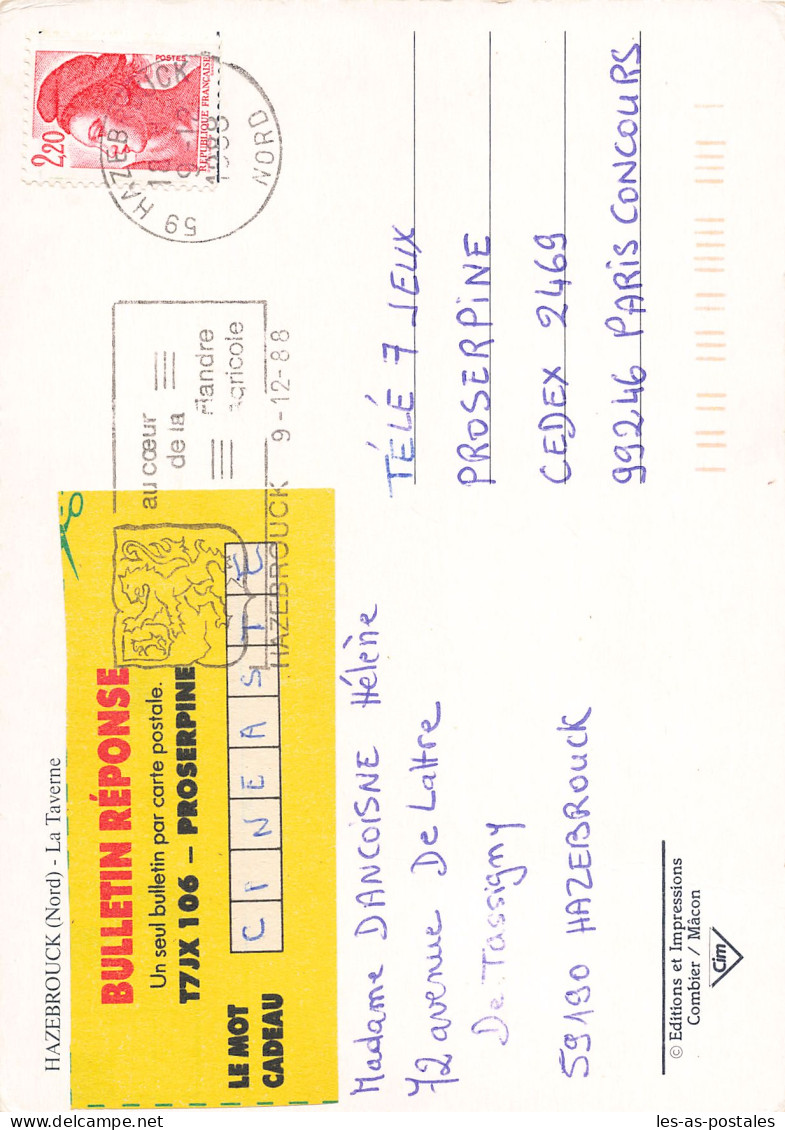 HAZEBROUCK (Nord) - La Taverne
BULLETIN RÉPONSE
Un seul bulletin par carte postale.
T7JX 106 – PROSERPINE
LE MOT
CADEAU
C I N E A S T E
au cœur
de la
Flandre
agricole
HAZEBROUCK 9-12-88
59 HAZEBROUCK
18
9-12
1988
NORD
2,20
POSTES
REPUBLIQUE FRANÇAISE
Madame DANCOISNE Hélène
72 avenue De Lattre
De Tassigny
59190 HAZEBROUCK
TÉLÉ 7 JEUX
PROSERPINE
CEDEX 2469
99246 PARIS CONCOURS
© Editions et Impressions
Combier / Mâcon
Cim
les-as-postales